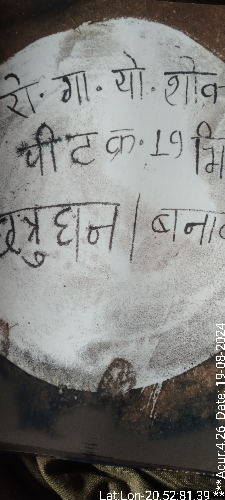 रो. गा. यो. शोव
पीट क्र. 19 मि
छत्रुहान | बनाव
***Acur:4.26 Date: 19-08-2024
Lat:Lon-20.52:81.39